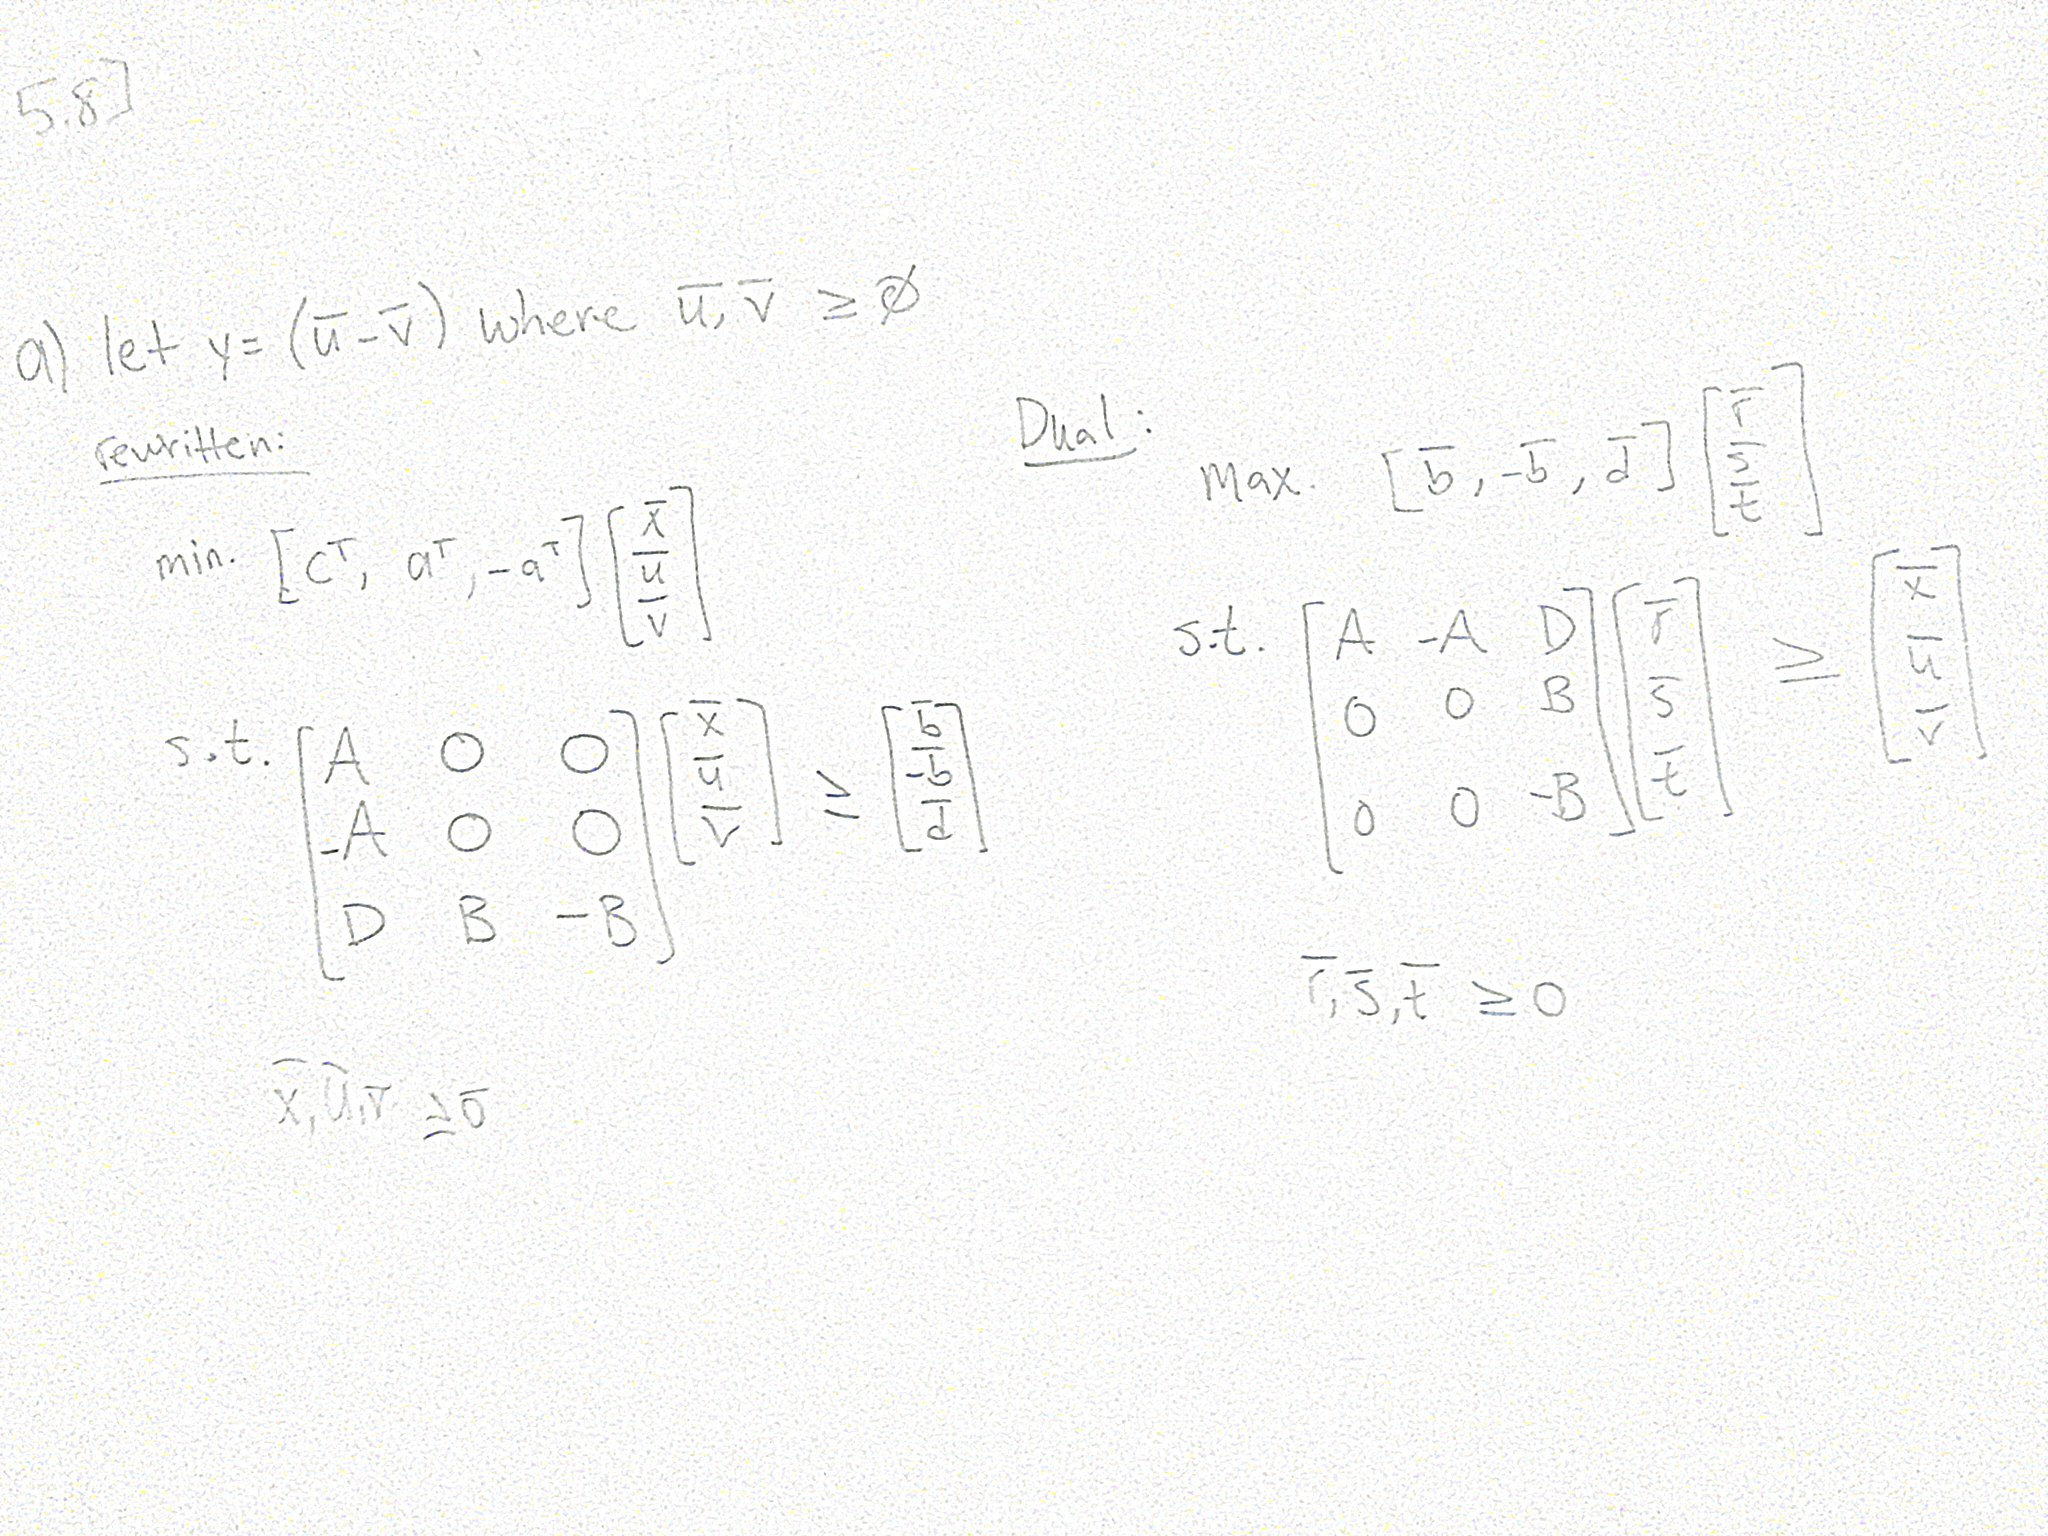 5.8]
a) let y = (u̅ - v̅) where u̅, v̅ ≥ ∅
rewritten:
min. [cᵀ, aᵀ, -aᵀ] [x̅ u̅ v̅]
s.t. [A 0 0
-A 0 0
D B -B] [x̅ u̅ v̅] ≥ [b̅ -b̅ d̅]
x̅, u̅, v̅ ≥ 0̅
Dual:
Max. [b̅, -b̅, d̅] [r̅ s̅ t̅]
s.t. [A -A D
0 0 B
0 0 -B] [r̅ s̅ t̅] ≥ [x̅ u̅ v̅]
r̅, s̅, t̅ ≥ 0